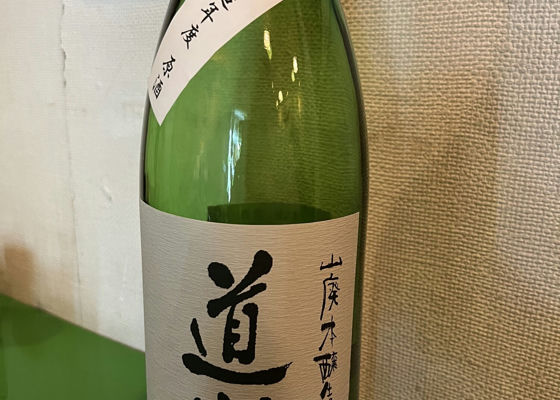 年度 原酒
山廃本醸生
道